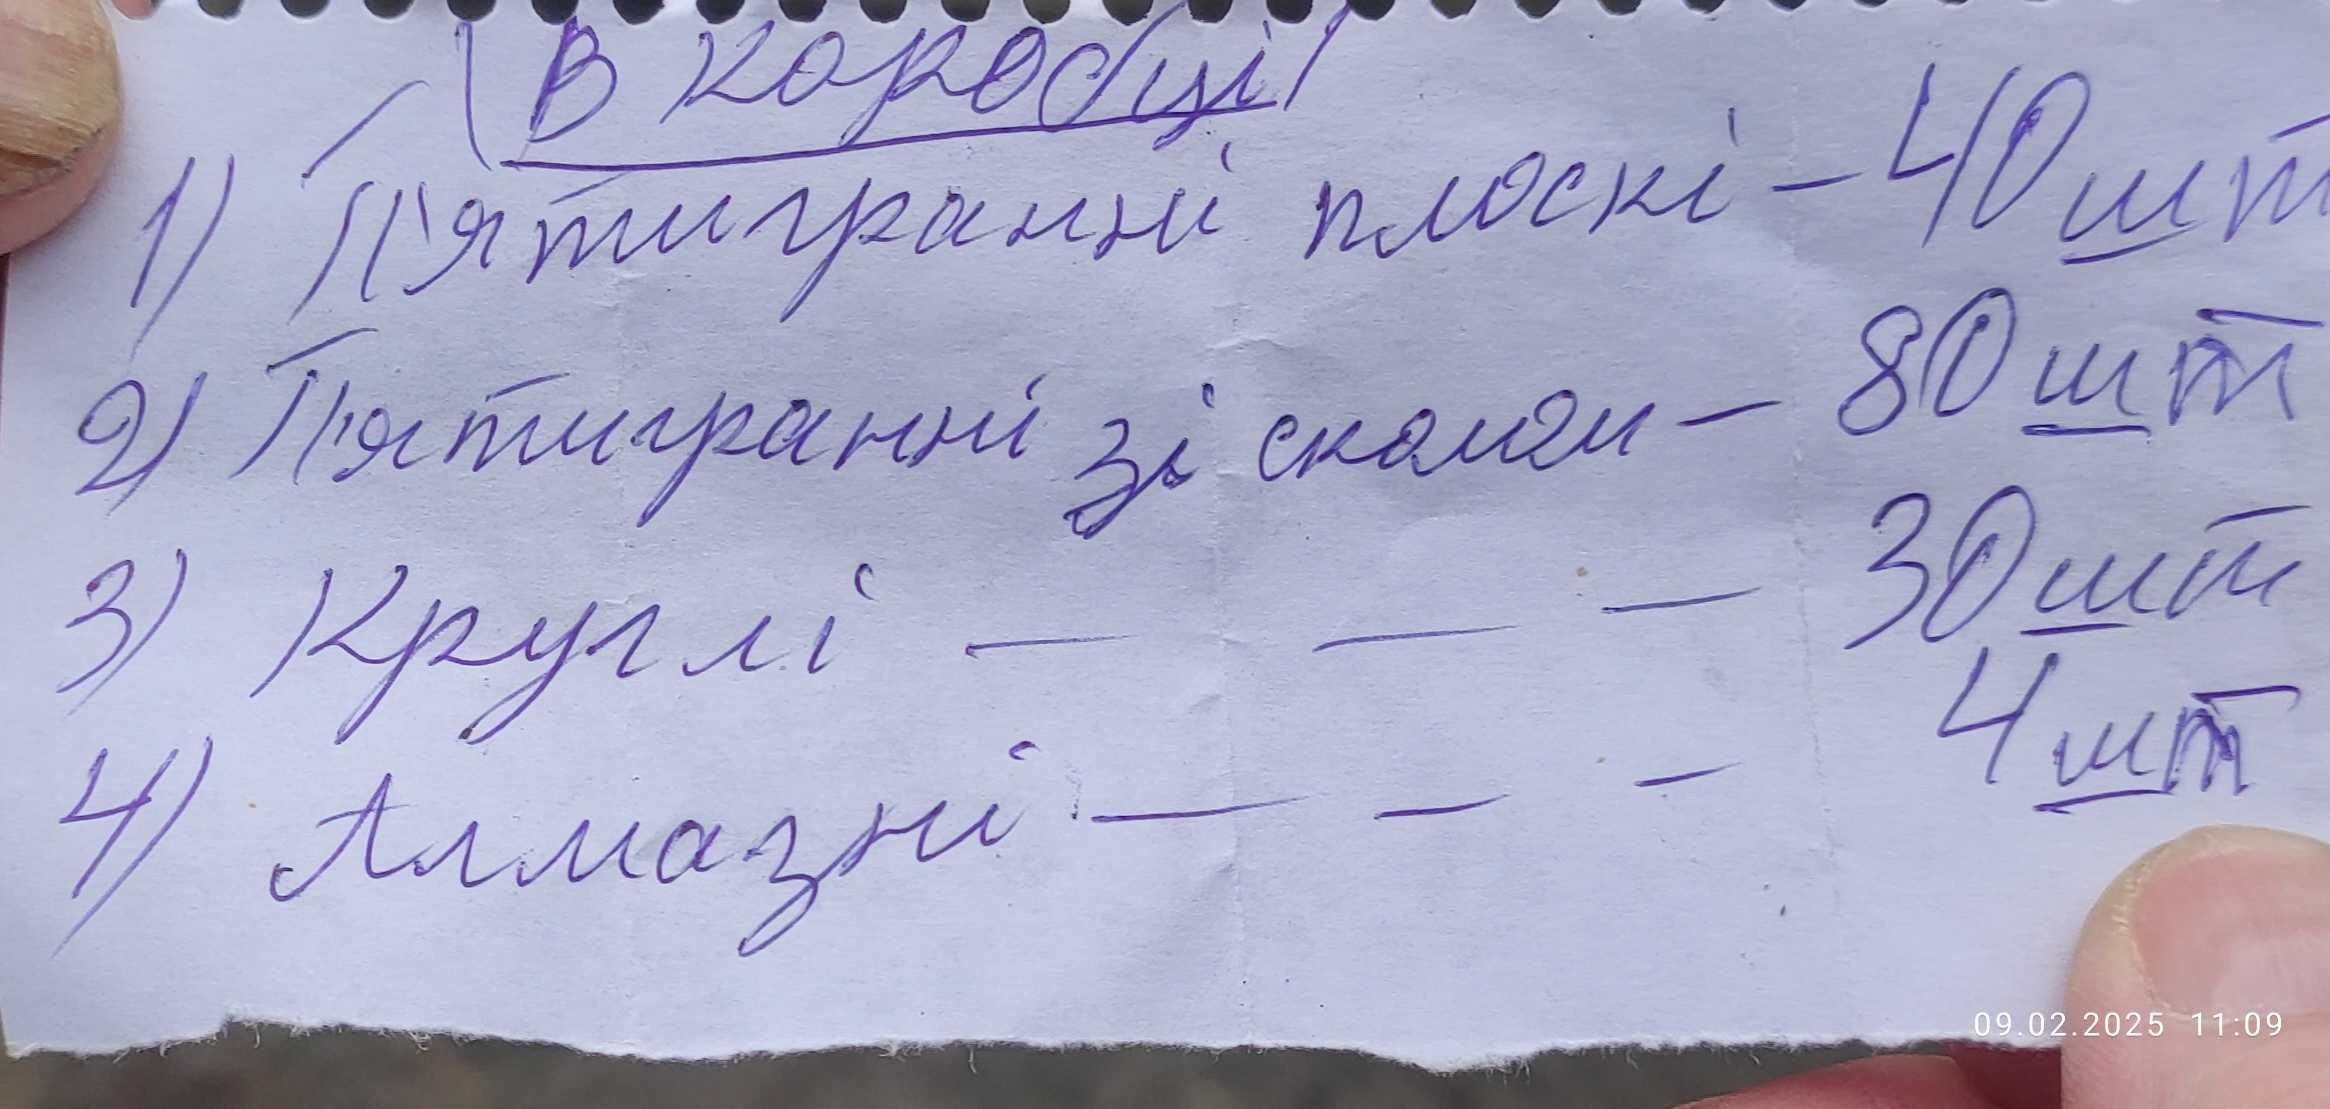 В коробці
1) П'ятигранні плоскі - 40 шт
2) П'ятигранні зі сколом - 80 шт
3) Круглі - - - 30 шт
4) Алмазні - - - 4 шт
09.02.2025 11:09